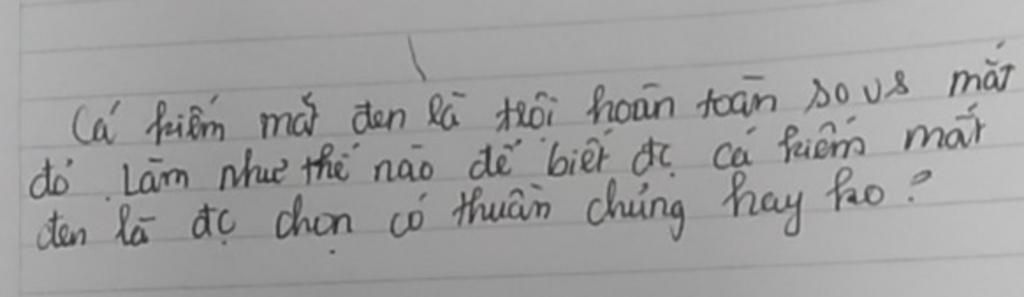 Cá kiếm mắt đen là trội hoàn toàn so vs mắt
đỏ. Làm như thế nào để biết đc cá kiếm mắt
đen là đc chọn có thuần chủng hay ko?